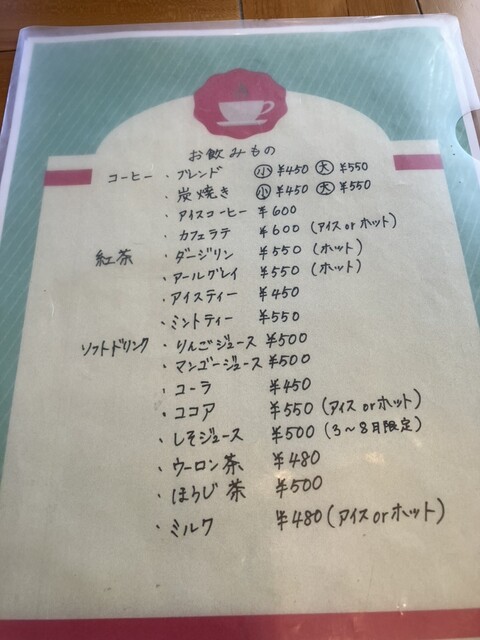 お飲みもの
コーヒー ・ブレンド ㊙小 ¥450 大 ¥550
・炭焼き 小 ¥450 大 ¥550
・アイスコーヒー ¥600
・カフェラテ ¥600 (アイス or ホット)
紅茶 ・ダージリン ¥550 (ホット)
・アールグレイ ¥550 (ホット)
・アイスティー ¥450
・ミントティー ¥550
ソフトドリンク ・りんごジュース ¥500
・マンゴージュース ¥500
・コーラ ¥450
・ココア ¥550 (アイス or ホット)
・しそジュース ¥500 (3〜8月限定)
・ウーロン茶 ¥480
・ほうじ茶 ¥500
・ミルク ¥480 (アイス or ホット)